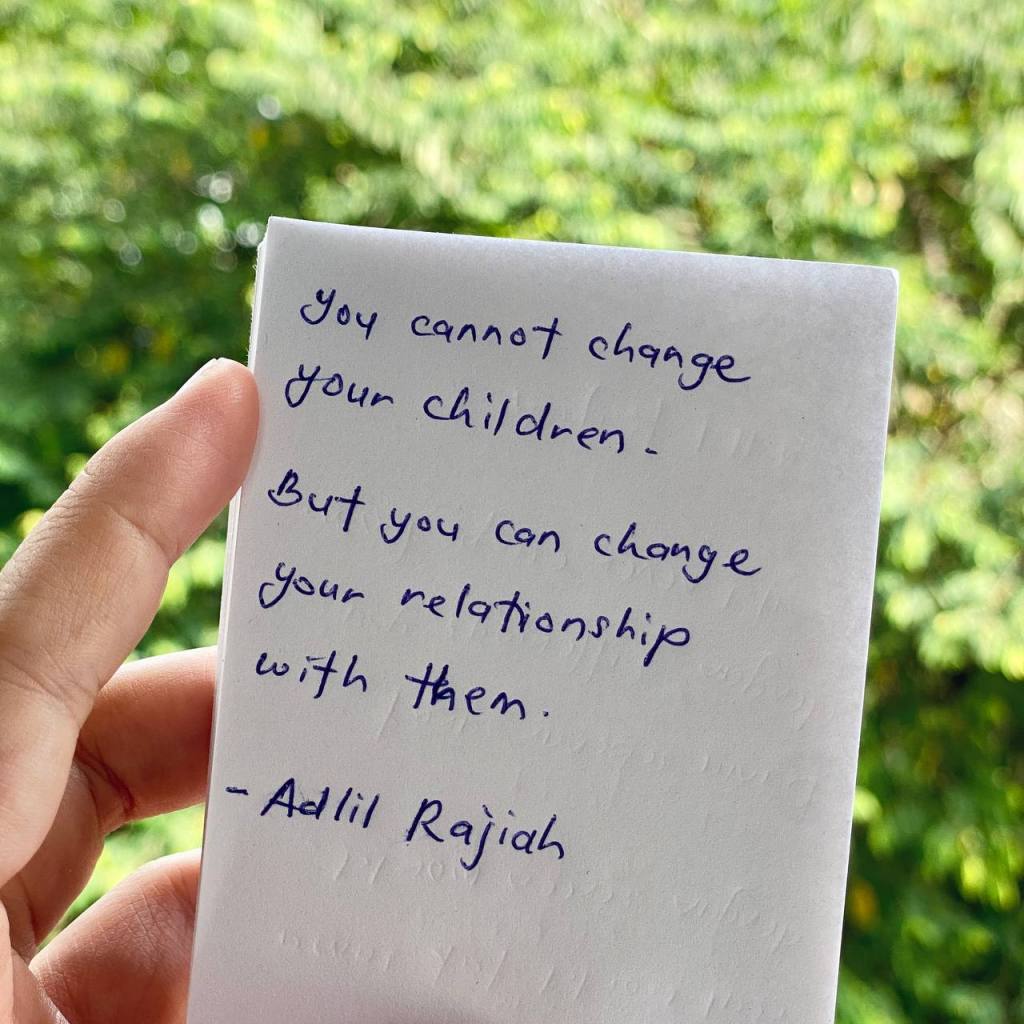 you cannot change
your children.
But you can change
your relationship
with them.
- Adlil Rajiah